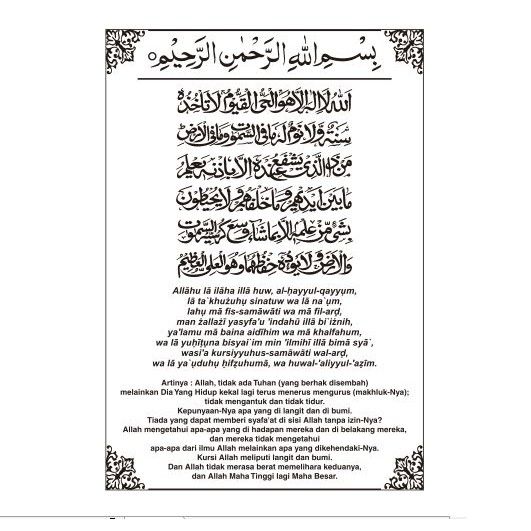 بِسْمِ اللهِ الرَّحْمٰنِ الرَّحِيْمِ
اللهُ لَا إِلٰهَ إِلَّا هُوَ الْحَيُّ الْقَيُّوْمُ لَا تَأْخُذُهُ
سِنَةٌ وَلَا نَوْمٌ لَهُ مَا فِى السَّمٰوٰتِ وَمَا فِى الْأَرْضِ
مَنْ ذَا الَّذِى يَشْفَعُ عِنْدَهُ إِلَّا بِإِذْنِهِ يَعْلَمُ
مَا بَيْنَ أَيْدِيْهِمْ وَمَا خَلْفَهُمْ وَلَا يُحِيْطُوْنَ
بِشَىْءٍ مِنْ عِلْمِهِ إِلَّا بِمَا شَاءَ وَسِعَ كُرْسِيُّهُ السَّمٰوٰتِ
وَالْأَرْضَ وَلَا يَؤُدُهُ حِفْظُهُمَا وَهُوَ الْعَلِىُّ الْعَظِيْمُ
Allāhu lā ilāha illā huw, al-ḥayyul-qayyụm,
lā ta`khużuhụ sinatuw wa lā na`ụm,
lahụ mā fis-samāwāti wa mā fil-arḍ,
man żallażī yasyfa'u 'indahū illā bi`iżnih,
ya'lamu mā baina aidīhim wa mā khalfahum,
wa lā yuḥīṭụna bisyai`im min 'ilmihī illā bimā syā`,
wasi'a kursiyyuhus-samāwāti wal-arḍ,
wa lā ya`ụduhụ ḥifẓuhumā, wa huwal-'aliyyul-'aẓīm.
Artinya : Allah, tidak ada Tuhan (yang berhak disembah)
melainkan Dia Yang Hidup kekal lagi terus menerus mengurus (makhluk-Nya);
tidak mengantuk dan tidak tidur.
Kepunyaan-Nya apa yang di langit dan di bumi.
Tiada yang dapat memberi syafa'at di sisi Allah tanpa izin-Nya?
Allah mengetahui apa-apa yang di hadapan mereka dan di belakang mereka,
dan mereka tidak mengetahui
apa-apa dari ilmu Allah melainkan apa yang dikehendaki-Nya.
Kursi Allah meliputi langit dan bumi.
Dan Allah tidak merasa berat memelihara keduanya,
dan Allah Maha Tinggi lagi Maha Besar.